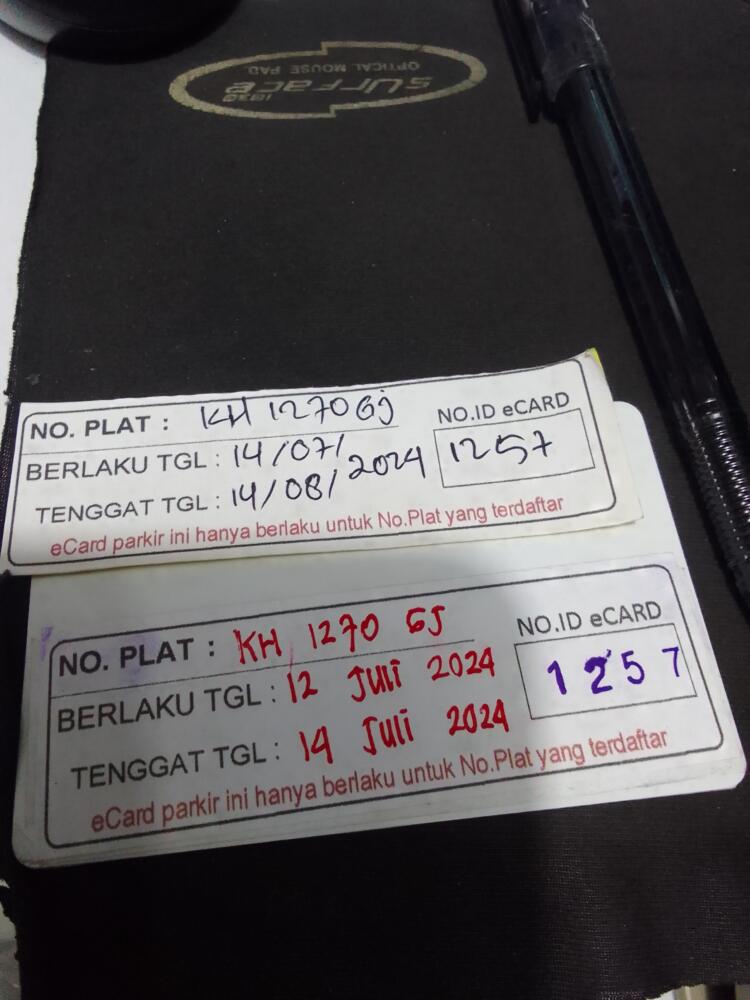 SURFACE
1030
OPTICAL MOUSE PAD.
NO. PLAT : KH 1270 GJ
NO.ID eCARD
BERLAKU TGL : 14/07/
1257
TENGGAT TGL : 14/08/ 2024
eCard parkir ini hanya berlaku untuk No.Plat yang terdaftar
NO. PLAT : KH 1270 GJ
NO.ID eCARD
BERLAKU TGL : 12 Juli 2024
1257
TENGGAT TGL : 14 Juli 2024
eCard parkir ini hanya berlaku untuk No.Plat yang terdaftar